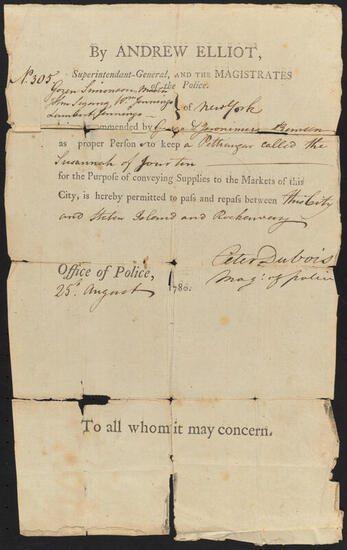 By ANDREW ELLIOT,
Superintendant-General, AND THE MAGISTRATES
of the Police.
No. 305.
Simonson
Jennings
Lambert Jennings
of New York
commended by George &
as proper Person s to keep a Pettiauger called the
Susannah of
for the Purpose of conveying Supplies to the Markets of this
City, is hereby permitted to paſs and repaſs between this City
and Staten Island and Rockaway
Office of Police,
25th August 1780.
Peter Dubois
Mag: of police
To all whom it may concern.